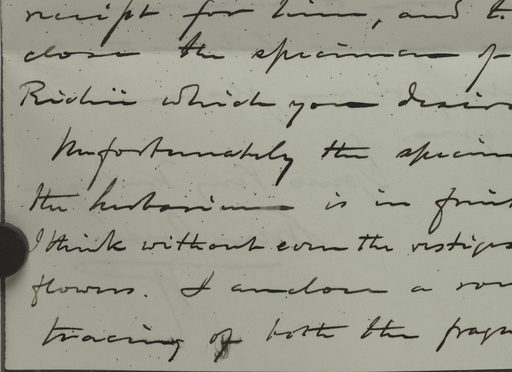 receipt for him, and t
close the specimen f
Ridii which you desir
Unfortunately the specim
the herbarium is in fruit
I think without even the vestiges
flowers. I enclose a rou
tracing of both the fragm